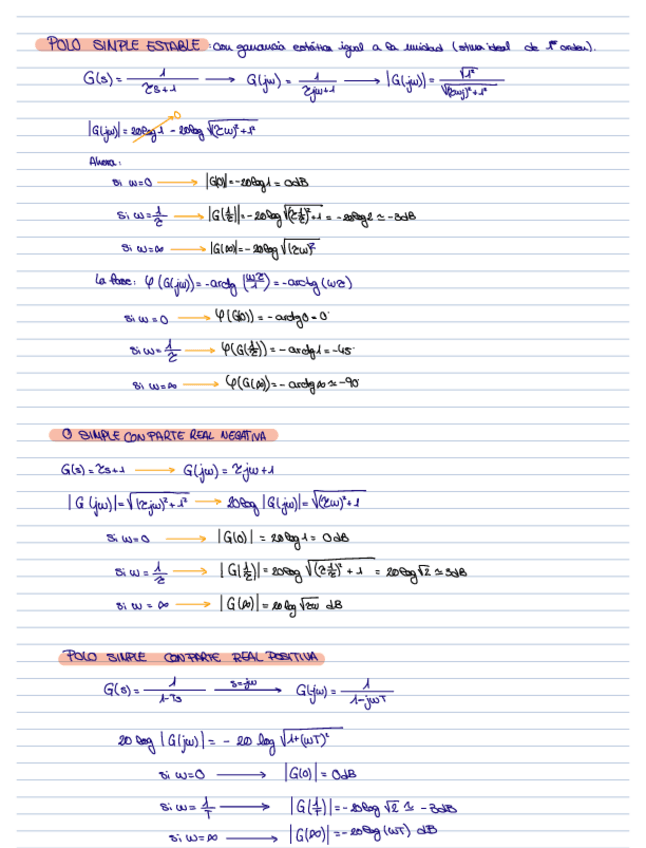 POLO SIMPLE ESTABLE: con ganancia estática igual a la unidad (otma ideal de 1er orden).
G(s) = 1/(τs+1) → G(jω) = 1/(τjω+1) → |G(jω)| = √1²/√(τωj)²+1²
|G(jω)| = 20log1 - 20log√(τω)²+1² 0
Ahora:
si ω=0 → |G(0)| = -20log1 = 0dB
si ω=1/τ → |G(1/τ)| = -20log√(τ1/τ)²+1 = -20log2 ≃ -3dB
si ω=∞ → |G(∞)| = -20log√(τω)²
la fase: φ(G(jω)) = -arctg(ωτ/1) = -arctg(ωτ)
si ω=0 → φ(G(0)) = -arctg0 = 0°
si ω=1/τ → φ(G(1/τ)) = -arctg1 = -45°
si ω=∞ → φ(G(∞)) = -arctg∞ ≃ -90°
0 SIMPLE CON PARTE REAL NEGATIVA
G(s) = τs+1 → G(jω) = τjω+1
|G(jω)| = √(τjω)²+1² → 20log|G(jω)| = √(τω)²+1
si ω=0 → |G(0)| = 20log1 = 0dB
si ω=1/τ → |G(1/τ)| = 20log√(τ1/τ)²+1 = 20log√2 ≃ 3dB
si ω=∞ → |G(∞)| = 20log√τω dB
POLO SIMPLE CON PARTE REAL POSITIVA
G(s) = 1/(1-Ts) s=jω → G(jω) = 1/(1-jωT)
20log|G(jω)| = -20log√1+(ωT)²
si ω=0 → |G(0)| = 0dB
si ω=1/T → |G(1/T)| = -20log√2 ≃ -3dB
si ω=∞ → |G(∞)| = -20log(ωT) dB